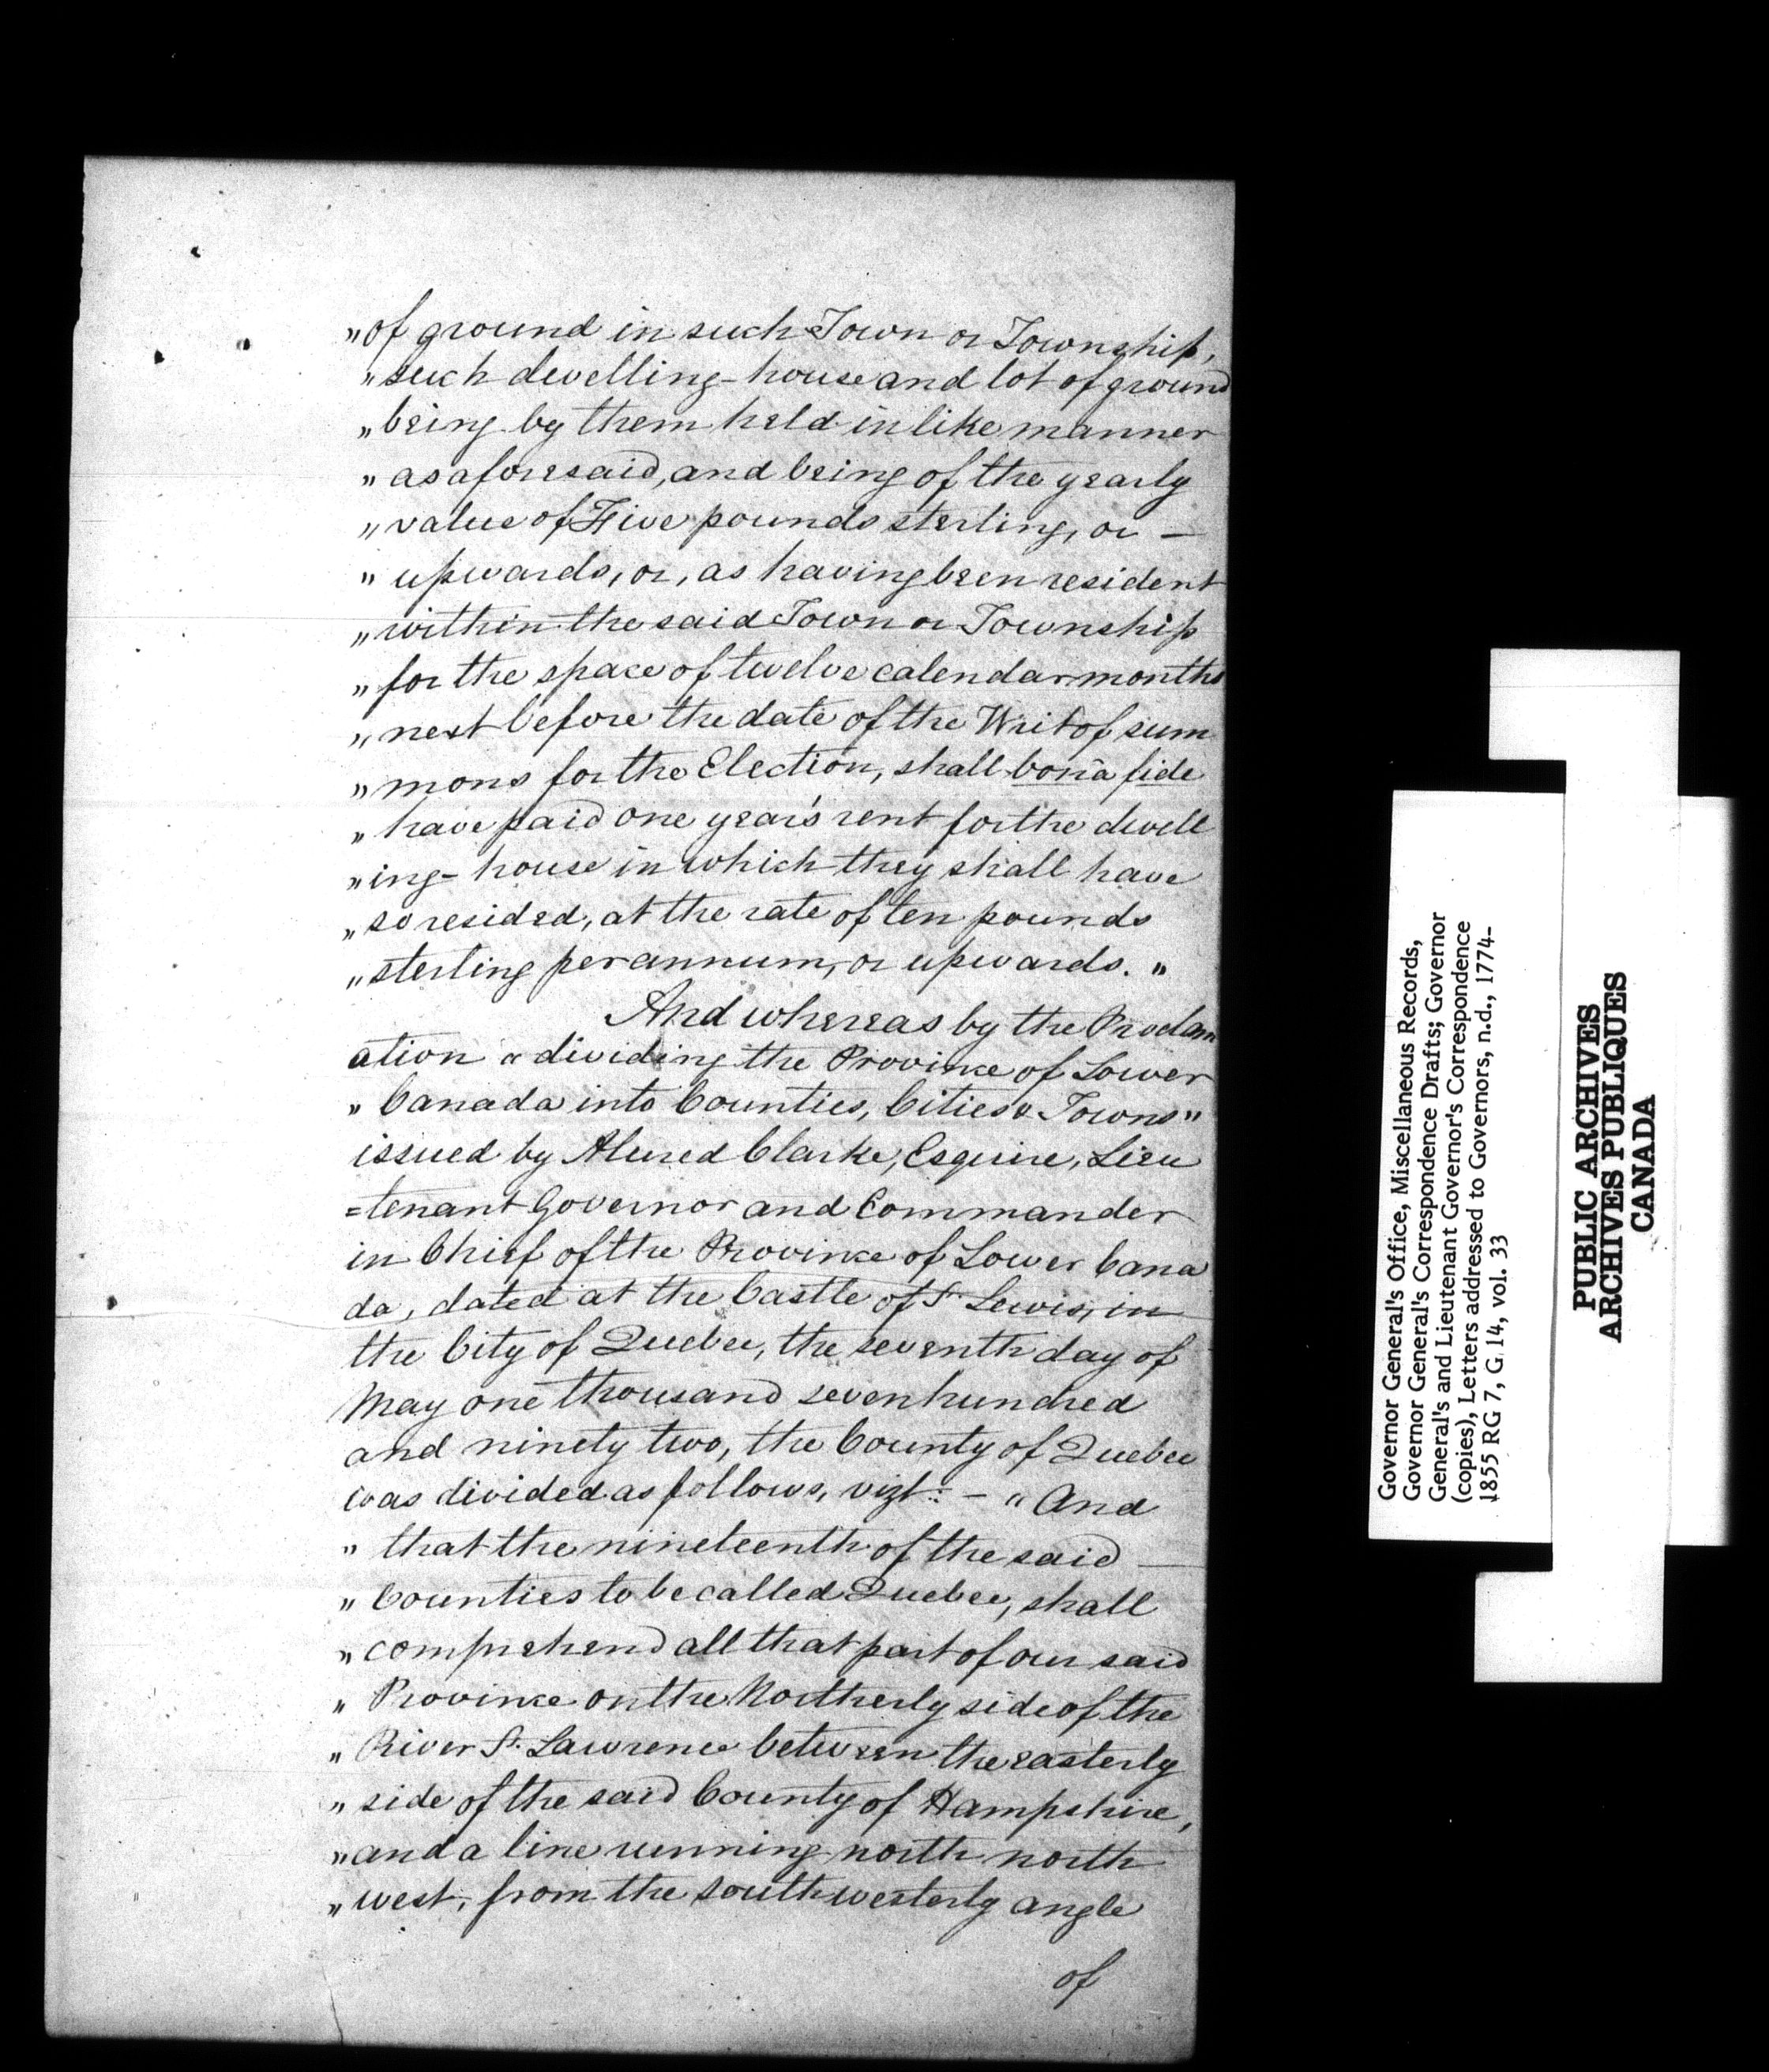 „ of ground in such Town or Township,
„ such dwelling-house and lot of ground
„ being by them held in like manner
„ as aforesaid, and being of the yearly
„ value of Five pounds sterling, or —
„ upwards, or, as having been resident
„ within the said Town or Township
„ for the space of twelve calendar months
„ next before the date of the Writ of sum
„ mons for the Election, shall bonâ fide
„ have paid one year's rent for the dwell
„ ing-house in which they shall have
„ so resided, at the rate of ten pounds
„ sterling per annum, or upwards. "
And whereas by the Proclam
ation " dividing the Province of Lower
" Canada into Counties, Cities & Towns "
issued by Alured Clarke, Esquire, Lieu
=tenant Governor and Commander
in Chief of the Province of Lower Cana
da, dated at the Castle of St Lewis, in
the City of Quebec, the seventh day of
May one thousand seven hundred
and ninety two, the County of Quebec
was divided as follows, vizt: — " And
" that the nineteenth of the said —
" Counties to be called Quebec, shall
" comprehend all that part of our said
" Province on the Northerly side of the
" River St. Lawrence between the easterly
" side of the said County of Hampshire,
" and a line running north north
" west, from the southwesterly angle
of
Governor General's Office, Miscellaneous Records,
Governor General's Correspondence Drafts; Governor
General's and Lieutenant Governor's Correspondence
(copies), Letters addressed to Governors, n.d., 1774-
1855 RG 7, G 14, vol. 33
PUBLIC ARCHIVES
ARCHIVES PUBLIQUES
CANADA